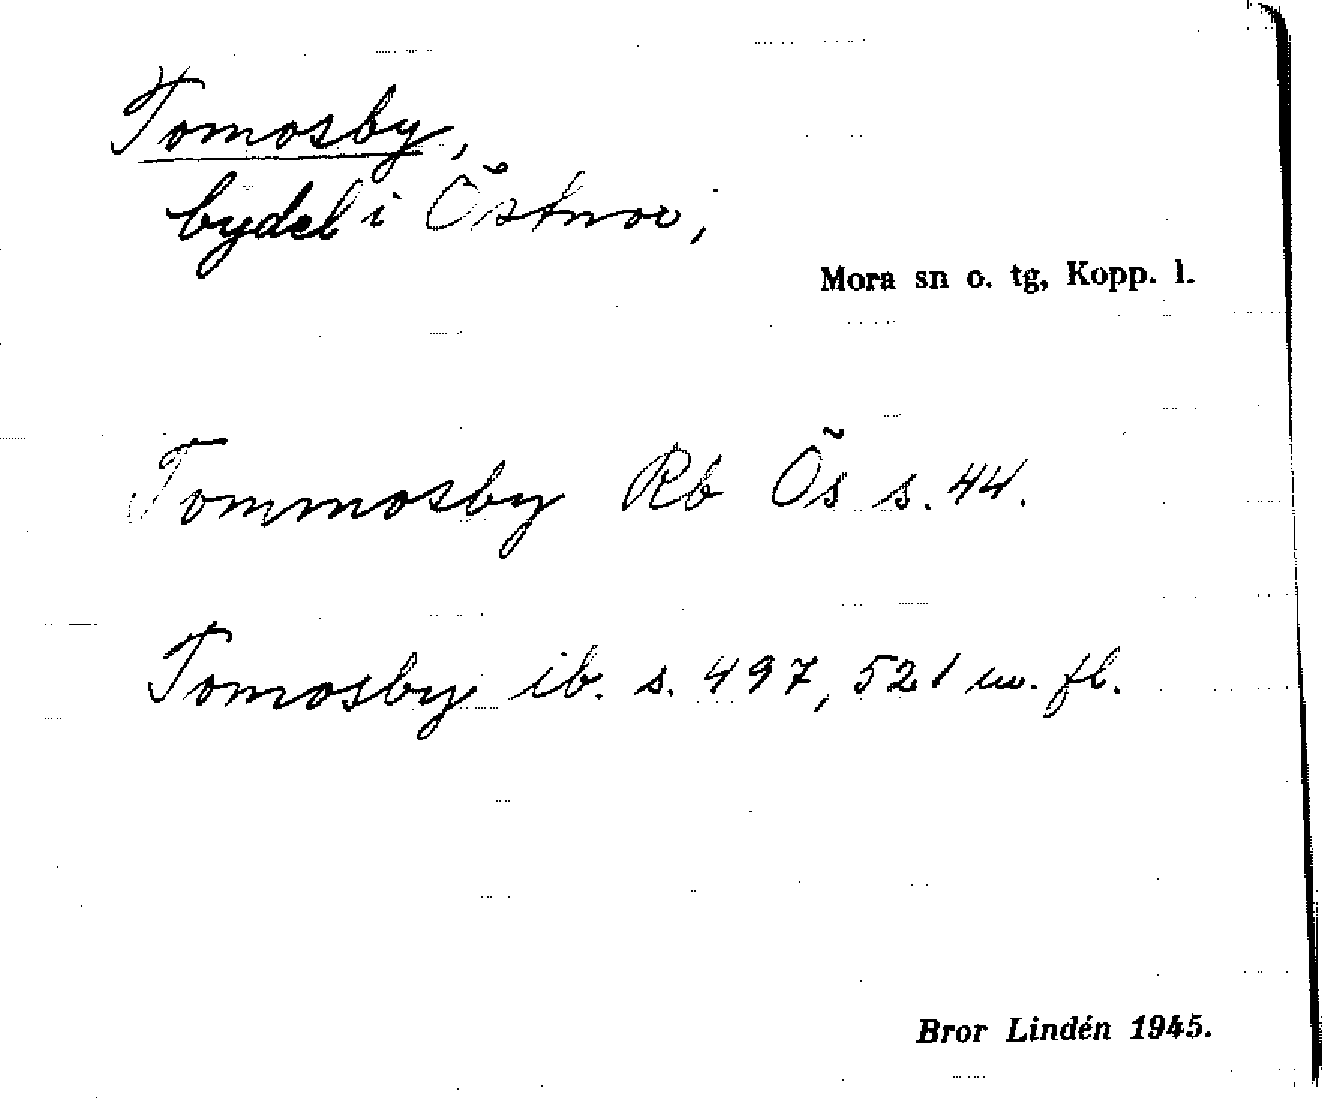 Tomosby,
bydel i Östnor,
Mora sn o. tg, Kopp. l.
Tommosby Rb Ös s. 44.
Tomosby ib. s. 497, 521 m. fl.
Bror Lindén 1945.